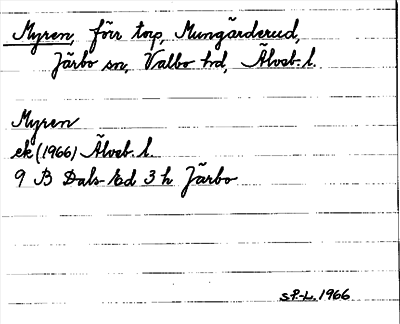 Myren, förr torp, Mungärderud,
Järbo sn, Valbo hd, Älvsb. l.
Myren
ek (1966) Älvsb. l.
9 B Dals-Ed 3 h Järbo
S.P.-L. 1966